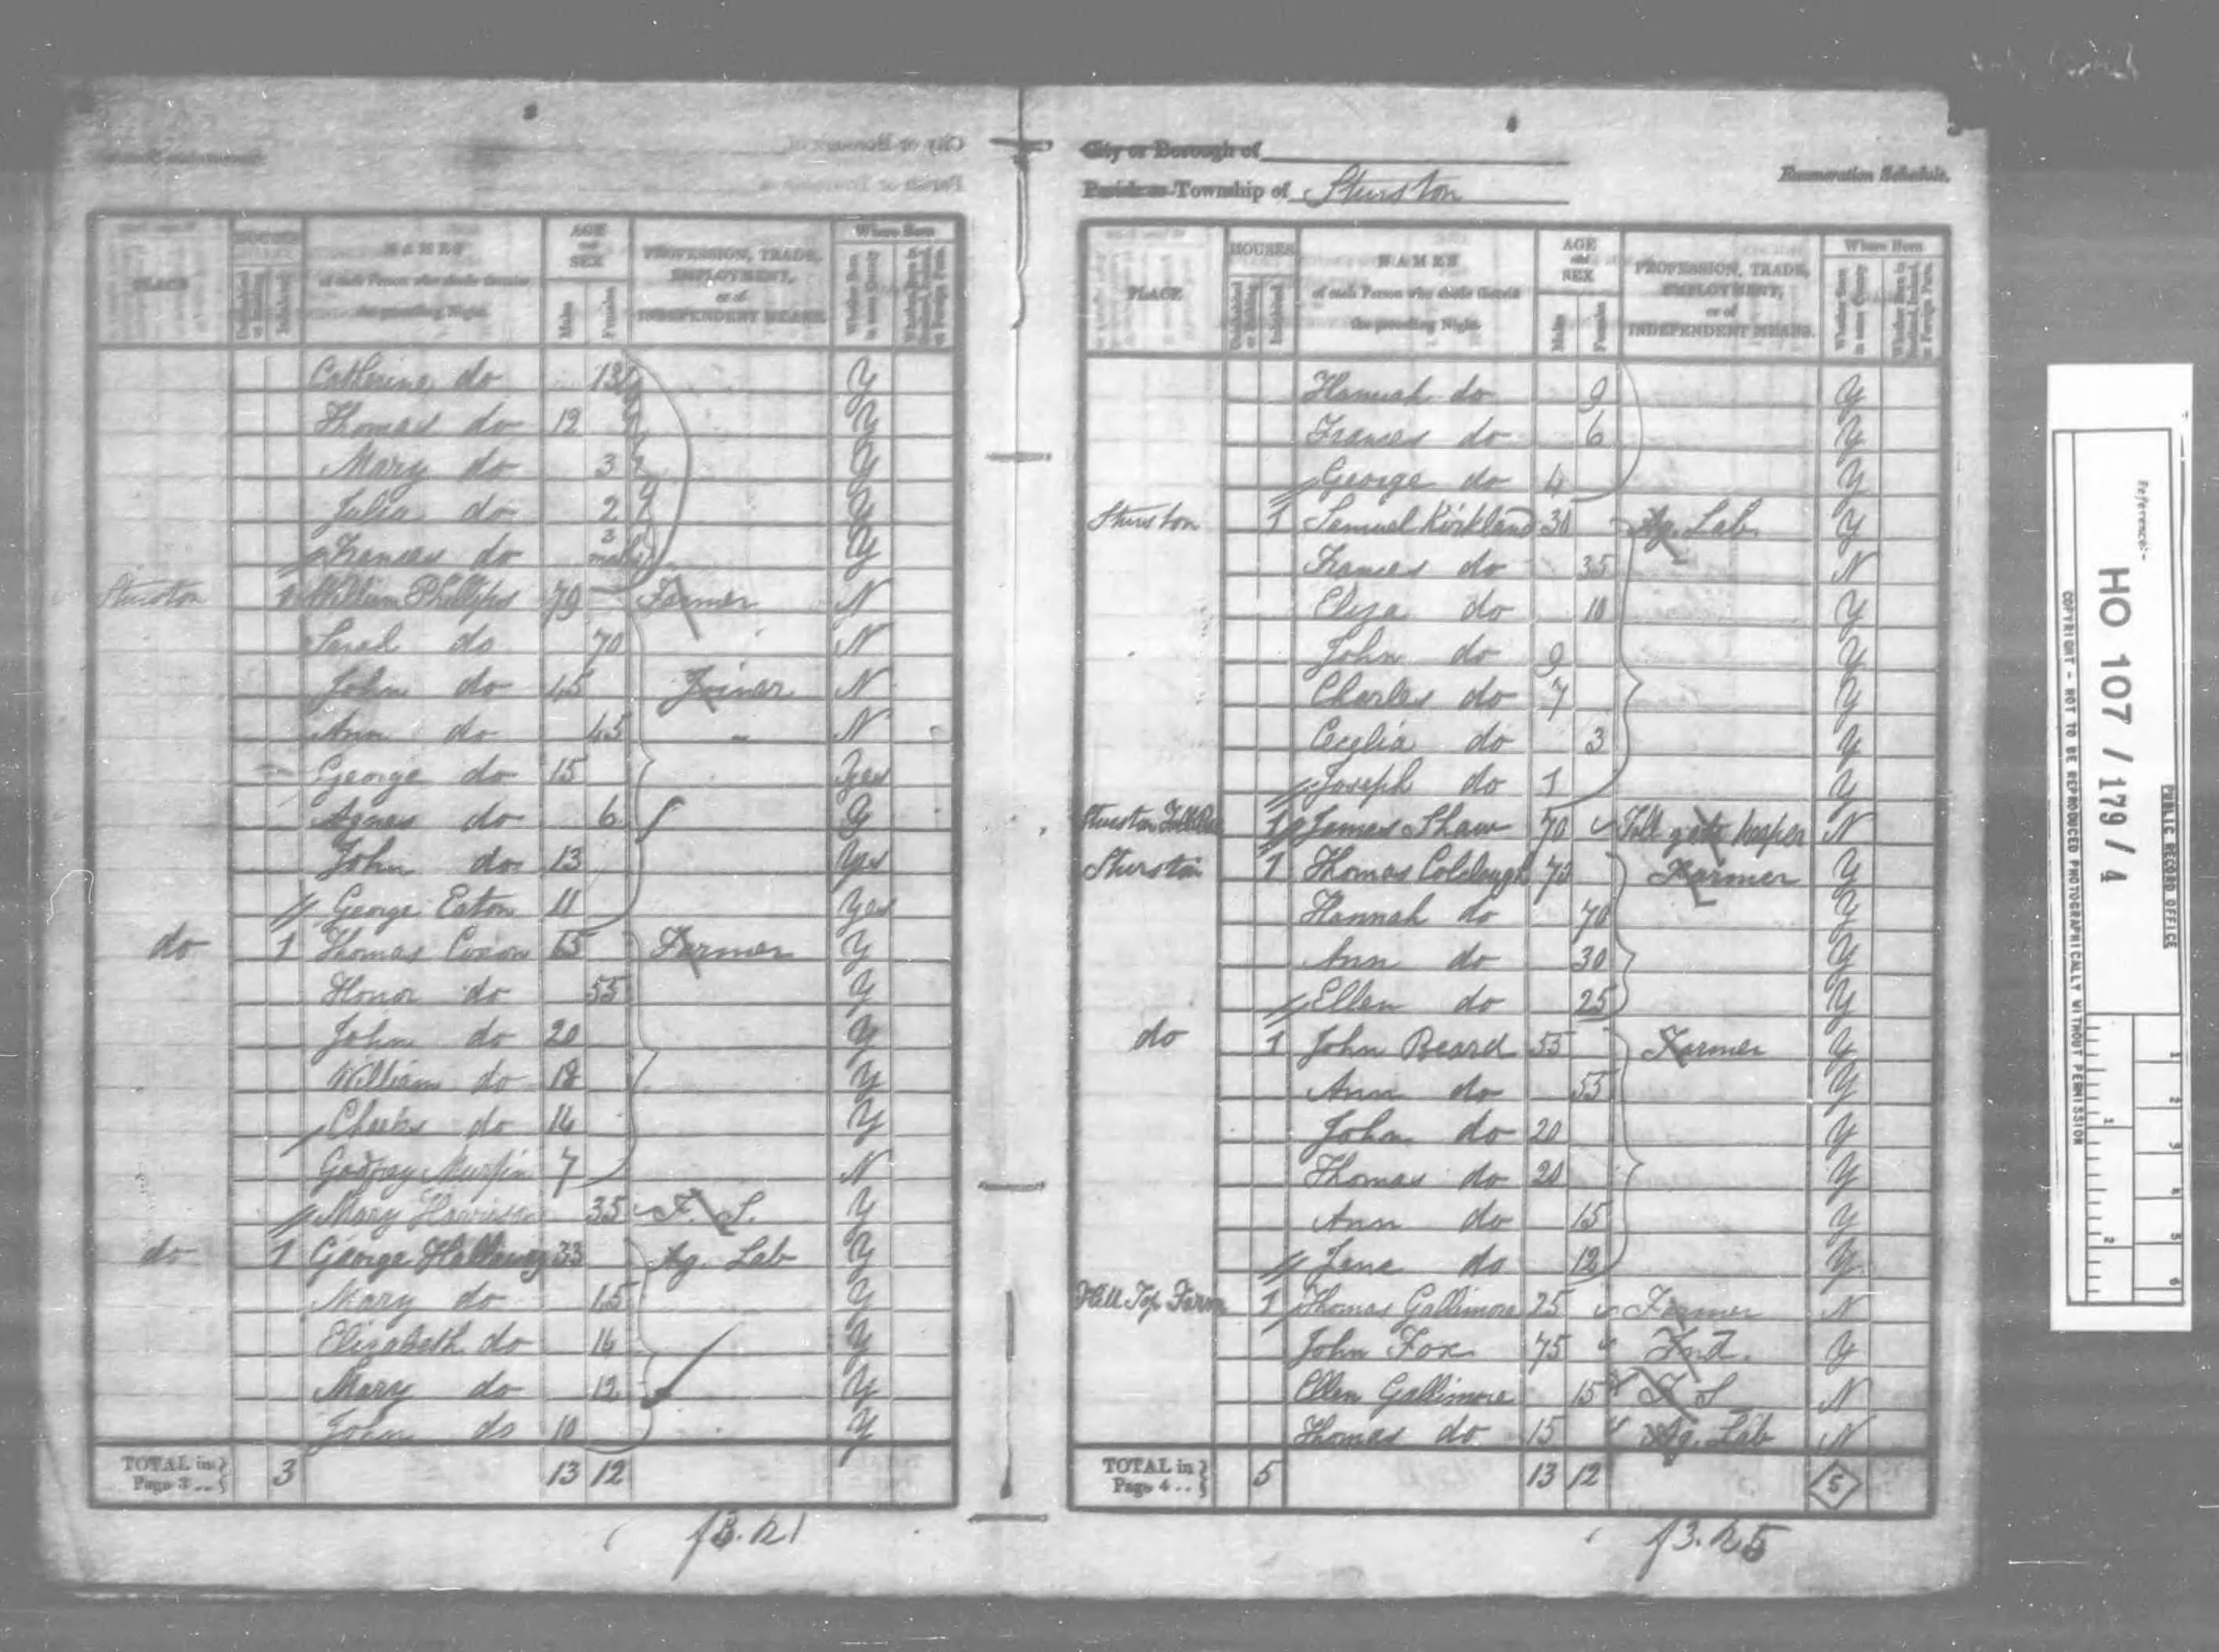 3
PLACE
HOUSES
NAMES
of each Person who abode therein
the preceding Night.
AGE
and
SEX
Males
Females
PROFESSION, TRADE,
EMPLOYMENT,
or of
INDEPENDENT MEANS.
Where Born
Whether Born
in same County
Catherine do 13 Y
Thomas do 12 Y
Mary do 3 Y
Julia do 2 Y
Frances do 3 Y
Sturston 1 William Phillips 79 Farmer N
Sarah do 70 N
John do 45 Joiner N
Ann do 45 N
George do 15 Yes
Agnes do 6 Y
John do 13 Yes
George Eaton 11 Yes
do 1 Thomas Coxon 65 Farmer Y
Honor do 55 Y
John do 20 Y
William do 18 Y
Charles do 14 Y
Godfrey 7 N
Mary Harrison 35 F. S. Y
do 1 George 33 Ag. Lab Y
Mary do 15 Y
Elizabeth do 14 Y
Mary do 12 Y
John do 10 Y
TOTAL in
Page 3 .. 3 13 12
4
City or Borough of
Parish or Township of Sturston
Enumeration Schedule.
PLACE
HOUSES
Uninhabited
or Building
Inhabited
NAMES
of each Person who abode therein
the preceding Night.
AGE
and
SEX
Males
Females
PROFESSION, TRADE,
EMPLOYMENT,
or of
INDEPENDENT MEANS.
Where Born
Whether Born
in same County
Whether Born in
Scotland, Ireland,
or Foreign Parts.
Hannah do 9 Y
Frances do 6 Y
George do 4 Y
Sturston 1 Samuel Kirkland 30 Ag. Lab. Y
Frances do 35 N
Eliza do 10 Y
John do 9 Y
Charles do 7 Y
Cecylia do 3 Y
Joseph do 1 Y
Sturston Toll Bar 1 James Shaw 70 Toll gate keeper N
Sturston 1 Thomas 70 Farmer Y
Hannah do 70 Y
Ann do 30 Y
Ellen do 25 Y
do 1 John Beard 55 Farmer Y
Ann do 55 Y
John do 20 Y
Thomas do 20 Y
Ann do 15 Y
Jane do 12 Y
Hill Top Farm 1 Thomas Gallimore 25 Farmer N
John Fox 75 Ind. Y
Ellen Gallimore 15 F S N
Thomas do 15 Ag. Lab N
TOTAL in
Page 4 .. 5 13 12 5
Reference:-
HO 107 / 179 / 4
PUBLIC RECORD OFFICE
COPYRIGHT - NOT TO BE REPRODUCED PHOTOGRAPHICALLY WITHOUT PERMISSION
1 2 3 4 5 6
1 2